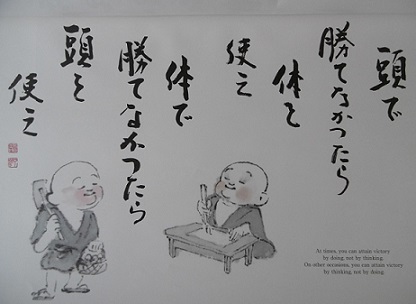 頭で
勝てなかったら
体を
使え
体で
勝てなかったら
頭を
使え
At times, you can attain victory
by doing, not by thinking.
On other occasions, you can attain victory
by thinking, not by doing.